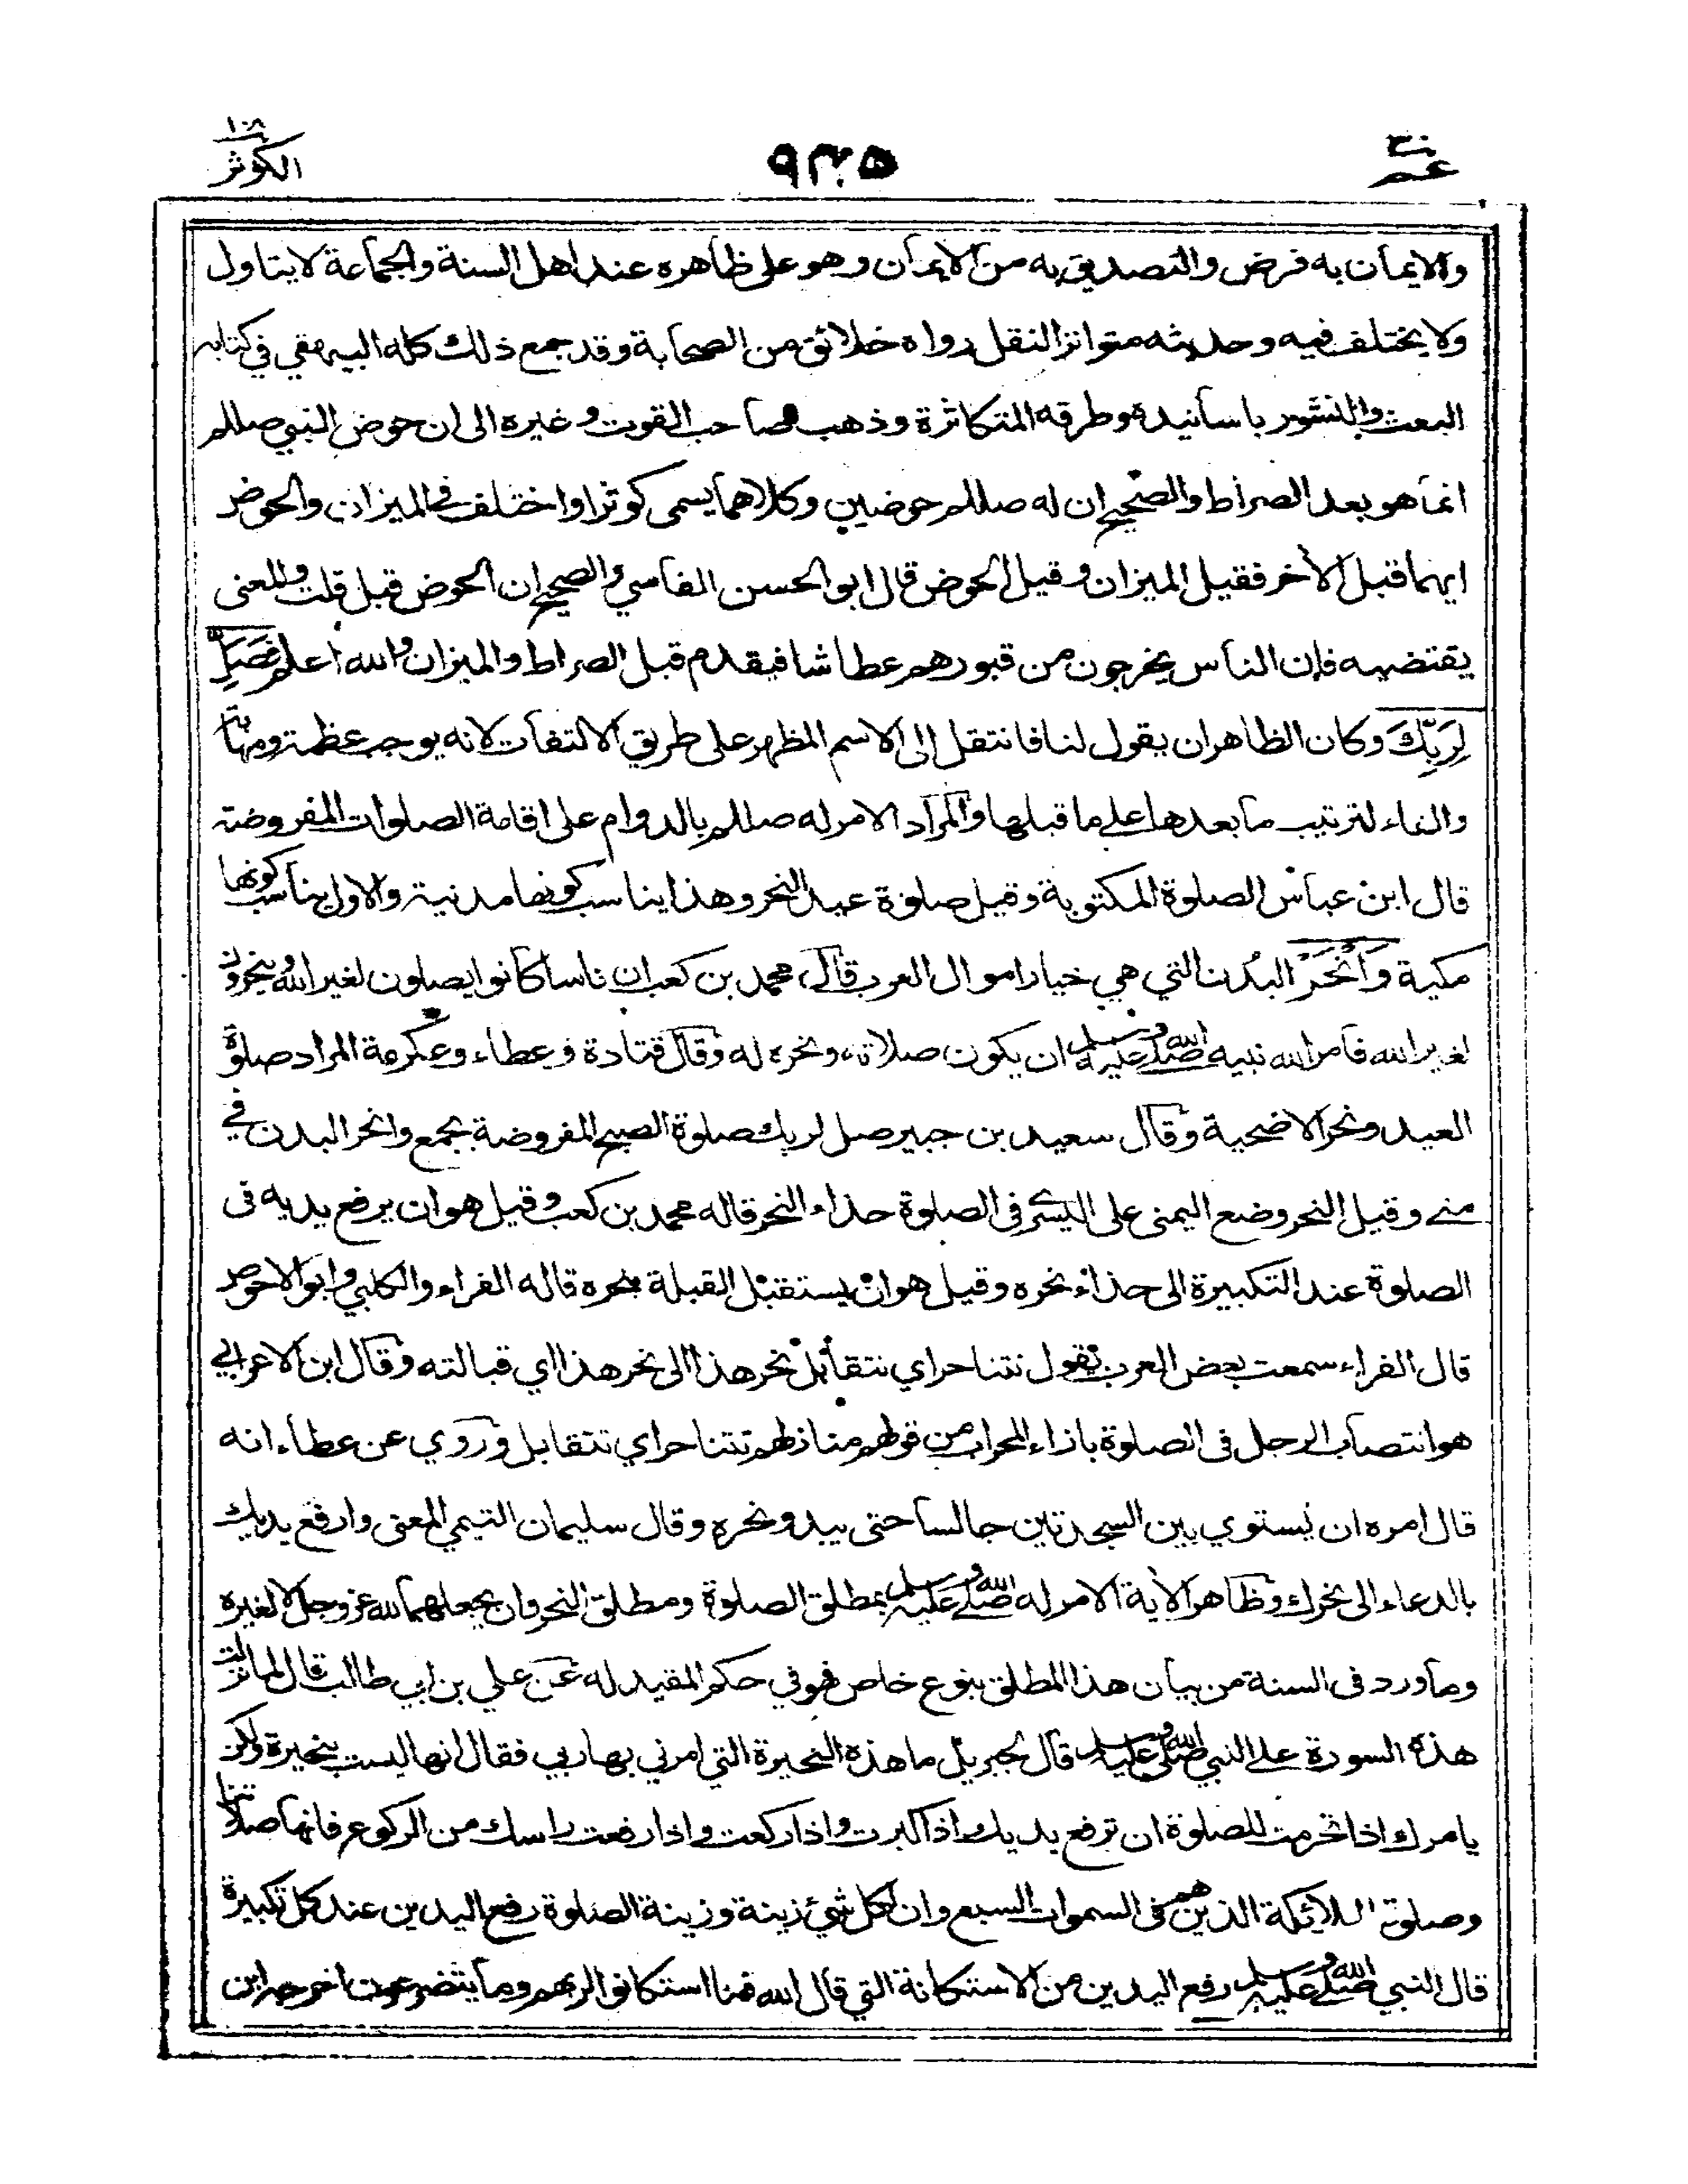 عم ٣٠
٩٣٥
١٠٨ الكوثر
والايمان به فرض والتصديق به من الايمان وهو على ظاهره عند اهل السنة والجماعة لا يتاول
ولا يختلف فيه وحديثه متواتر النقل رواه خلائق من الصحابة وقد جمع ذلك كله البيهقي في كتابه
البعث والنشور باسانيده وطرقه المتكاثرة وذهب صاحب القوت وغيره الى ان حوض النبي صللم
انما هو بعد الصراط والصحيح ان له صللم حوضين وكلاهما يسمى كوثرا واختلف في الميزان والحوض
ايهما قبل الأخر فقيل الميزان وقيل الحوض قال ابو الحسن الفاسي والصحيح ان الحوض قبل قلت والمعنى
يقتضيه فان الناس يخرجون من قبورهم عطاشا فيقدم قبل الصراط والميزان والله اعلم فَصَلِّ
لِرَبِّكَ وكان الظاهر ان يقول لنا فانتقل الى الاسم المظهر على طريق الالتفات لانه يوجب عظمة ومهابة
والفاء لترتيب ما بعدها على ما قبلها والمراد الامر له صللم بالدوام على اقامة الصلوات المفروضة
قال ابن عباس الصلوة المكتوبة وقيل صلوة عيد النحر وهذا يناسب كونها مدنية والاول يناسب كونها
مكية وَانْحَرْ البُدن التي هي خيار اموال العرب قال محمد بن كعب ان ناسا كانوا يصلون لغير الله وينحرون
لغير الله فامر الله نبيه صلى الله عليه وسلم ان يكون صلاته ونحره له وقال قتادة وعطاء وعكرمة المراد صلوة
العيد ونحر الاضحية وقال سعيد بن جبير صل لربك صلوة الصبح المفروضة بجمع وانحر البدن في
منى وقيل النحر وضع اليمنى على اليسرى في الصلوة حذاء النحر قاله محمد بن كعب وقيل هو ان يرفع يديه في
الصلوة عند التكبيرة الى حذاء نحره وقيل هو ان يستقبل القبلة بنحره قاله الفراء والكلبي وابو الاحوص
قال الفراء سمعت بعض العرب يقول نتناحر اي نتقابل نحر هذا الى نحر هذا اي قبالته وقال ابن الاعرابي
هو انتصاب الرجل في الصلوة بازاء المحراب من قولهم منازلهم تتناحر اي تتقابل وروي عن عطاء انه
قال امره ان يستوي بين السجدتين جالسا حتى يبدو نحره وقال سليمان التيمي المعنى وارفع يديك
بالدعاء الى نحرك وظاهر الأية الامر له صلى الله عليه وسلم بمطلق الصلوة ومطلق النحر وان يجعلهما لله عز وجل لا لغيره
وما ورد في السنة من بيان هذا المطلق بنوع خاص فهو في حكم المقيد له عن علي بن ابي طالب قال لما نزلت
هذه السورة على النبي صلى الله عليه وسلم قال لجبريل ما هذه النحيرة التي امرني بها ربي فقال انها ليست بنحيرة ولكن
يامرك اذا تحرمت للصلوة ان ترفع يديك اذا كبرت واذا ركعت واذا رفعت راسك من الركوع فانها صلاتنا
وصلوة الملائكة الذين هم في السموات السبع وان لكل شيئ زينة وزينة الصلوة رفع اليدين عند كل تكبيرة
قال النبي صلى الله عليه وسلم رفع اليدين من الاستكانة التي قال الله فما استكانوا لربهم وما يتضرعون اخرجه ابن